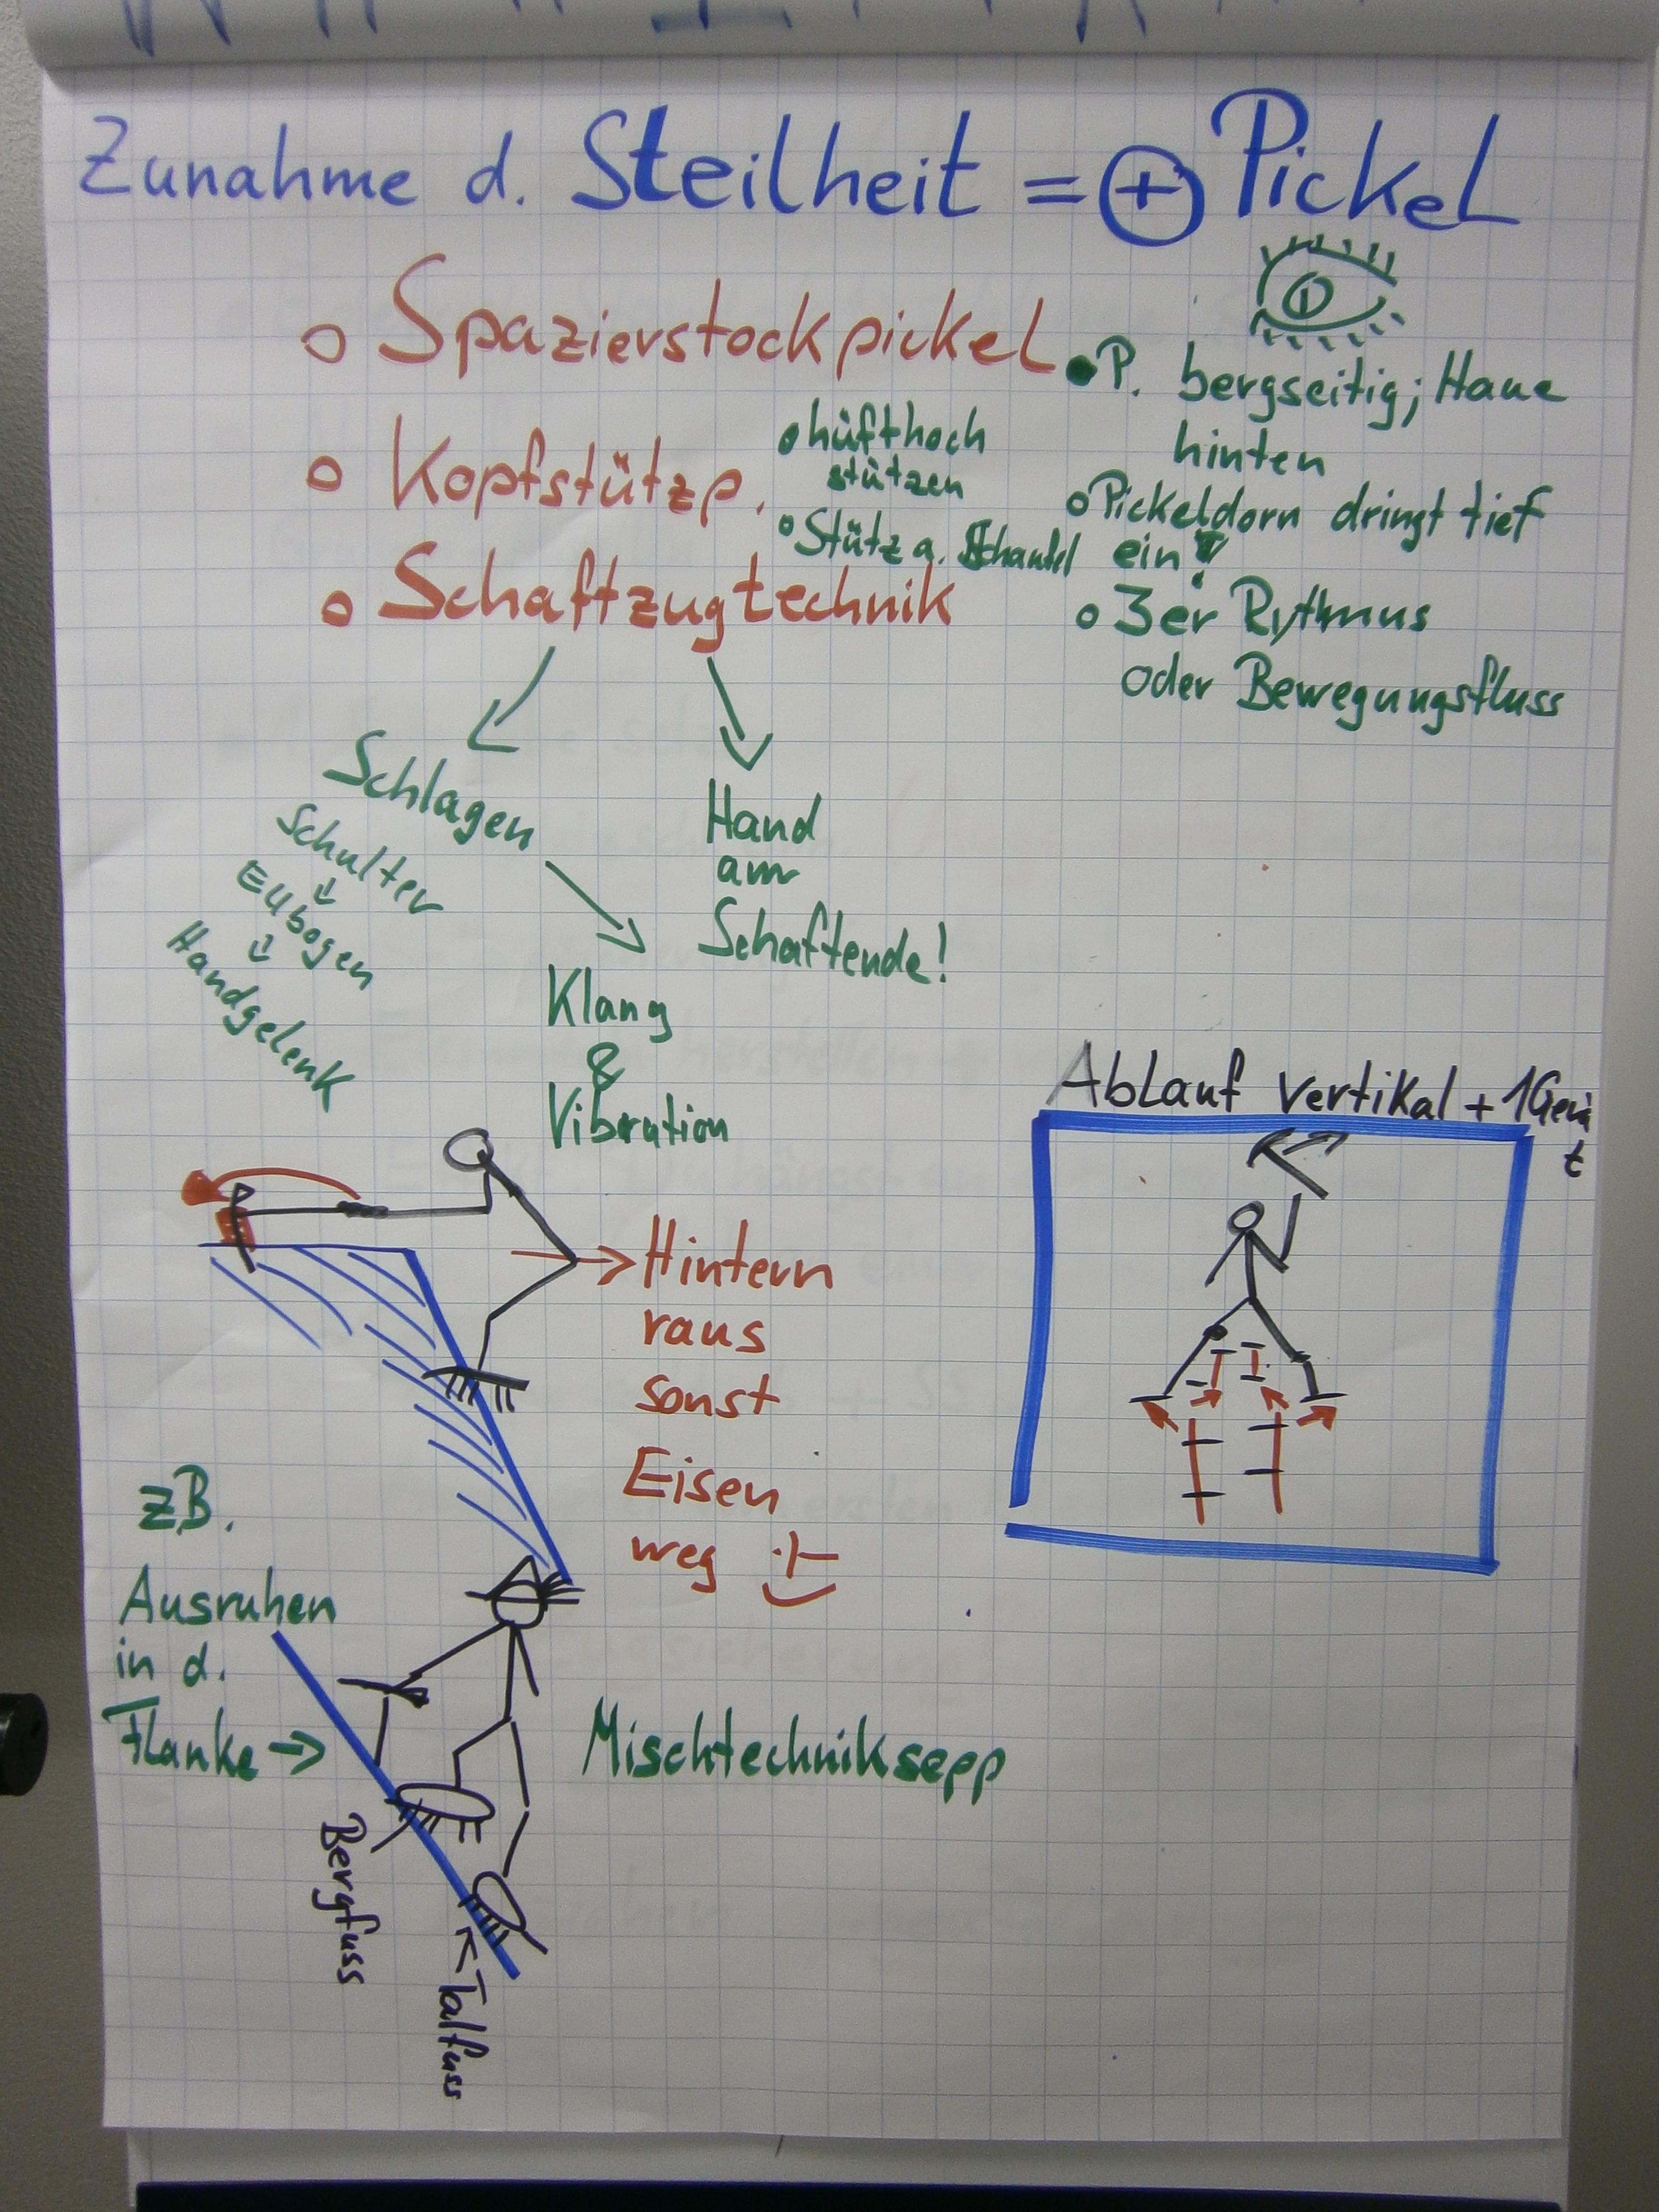 Zunahme d. Steilheit = + Pickel
o Spazierstockpickel
• P. bergseitig; Haue
hinten
o Pickeldorn dringt tief
ein!
o 3er Rytmus
oder Bewegungsfluss
o Kopfstützp.
o hüfthoch
stützen
o Stütz a.
o Schaftzugtechnik
Schlagen
Schulter
Ellbogen
Handgelenk
Klang
&
Vibration
Hand
am
Schaftende!
Ablauf vertikal + 1Gerä
t
Hintern
raus
sonst
Eisen
weg
zB.
Ausruhen
in d.
Flanke
Mischtechniksepp
Bergfuss
Talfuss